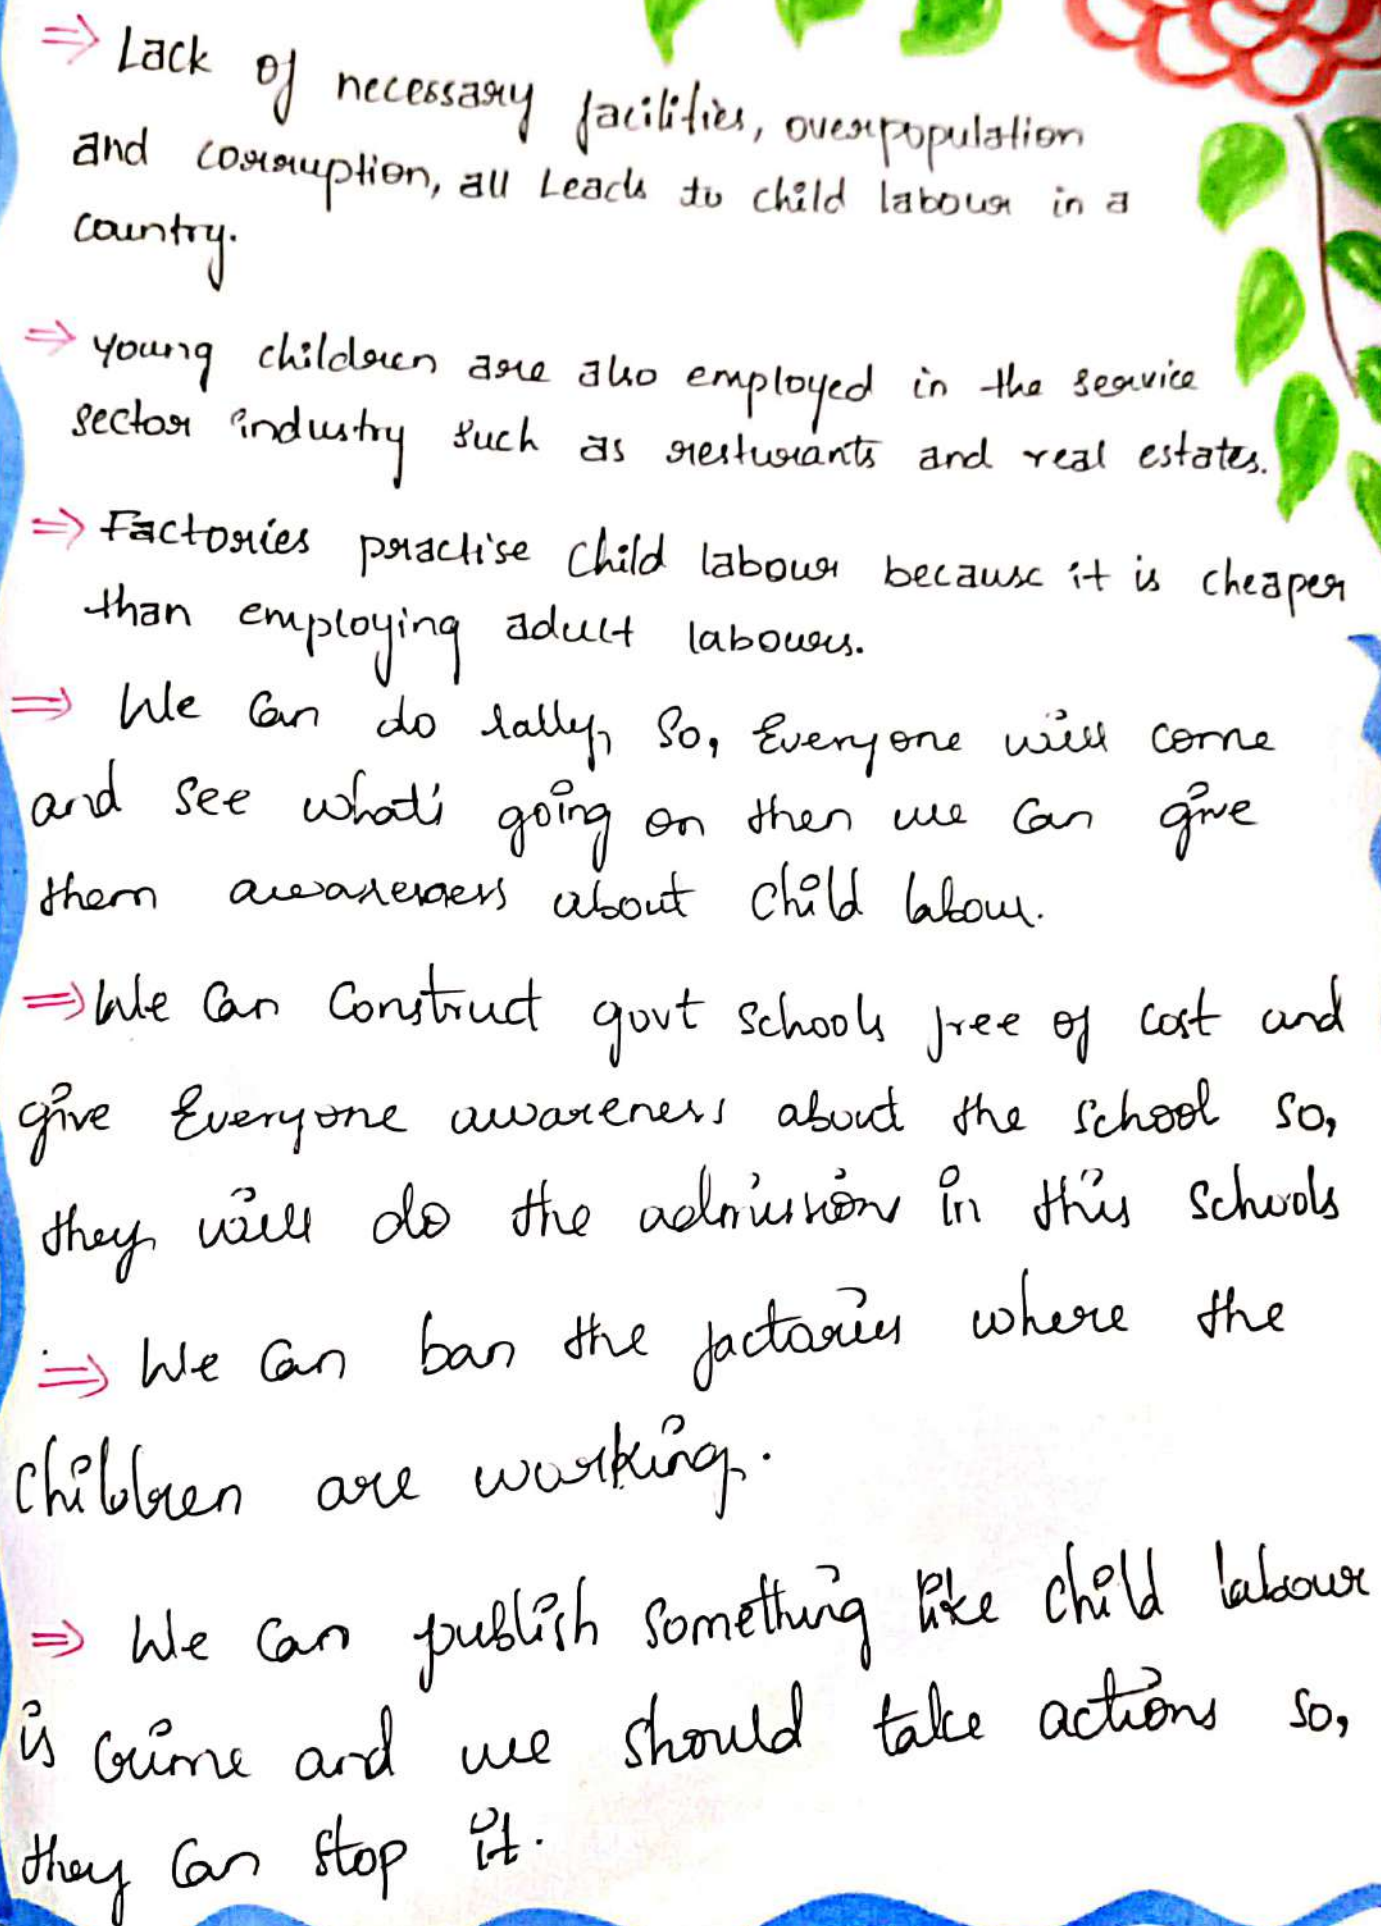 ⇒ Lack of necessary facilities, overpopulation
and corruption, all Leads to child labour in a
country.
⇒ young children are also employed in the service
sector industry such as resturants and real estates.
⇒ Factories practise child labour because it is cheaper
than employing adult labours.
⇒ We can do rally, So, Everyone will come
and see what's going on then we can give
them awareness about child labour.
⇒ We can construct govt schools free of cost and
give Everyone awareness about the school so,
they will do the admission in this schools
⇒ We can ban the factories where the
children are working.
⇒ We can publish something like child labour
is crime and we should take actions so,
they can stop it.